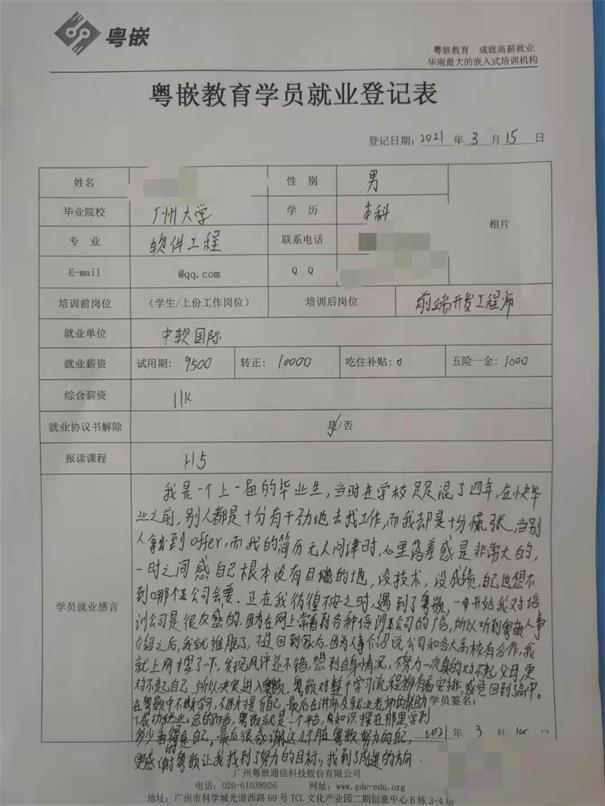 粤嵌
粤嵌教育 成就高薪就业
华南最大的嵌入式培训机构
粤嵌教育学员就业登记表
登记日期：2021 年 3 月 15 日
姓名 性别 男
毕业院校 广州大学 学历 本科 相片
专业 软件工程 联系电话
E-mail @qq.com Q Q
培训前岗位 （学生/上份工作岗位） 培训后岗位 前端开发工程师
就业单位 中软国际
就业薪资 试用期：9500 转正：10000 吃住补贴：0 五险一金：1000
综合薪资 11K
就业协议书解除 是/否
报读课程 H5
学员就业感言
我是一个上一届的毕业生，当时在学校足足混了四年，在快毕
业之前，别人都是十分有干劲地去找工作，而我却是十分慌张，当别
人拿到offer，而我的简历无人问津时，心里落差感是非常大的，
一时之间感自己根本没有目的地，没技术，没成绩，自己也想不
到哪个公司会要。正在我彷徨不安之时，遇到了粤嵌，一开始我对培
训公司是很反感的，因为在网上常看到各种培训公司的广告，所以听到粤嵌人事
介绍之后，我就推脱了，不过回到家后，因为人事介绍说公司和各大高校有合作，我
就上网搜了下，发现风评还不错，想到自身情况，不努力一次真的对不起父母，更
对不起自己，所以决定进入粤嵌，粤嵌对整个学习流程都有安排，感觉回到高中。
在粤嵌中不断学习，不断提 自己，最后在讲师及就业老师的帮助
学员签名：
下成功就业。总的而言，粤嵌就是一个平台，知识 摆在那里学到
多少 自己。最后很感谢这个 粤嵌努力的自己，
2021 年 3 月
更感谢粤嵌让我找到了努力的目标，找到了前进的方向。
广州粤嵌通信科技股份有限公司
电话：020-61038926 网址：www.gde-edu.org
地址：广州市科学城光谱西路 69 号 TCL 文化产业园二期创意中心 B 栋 3-4